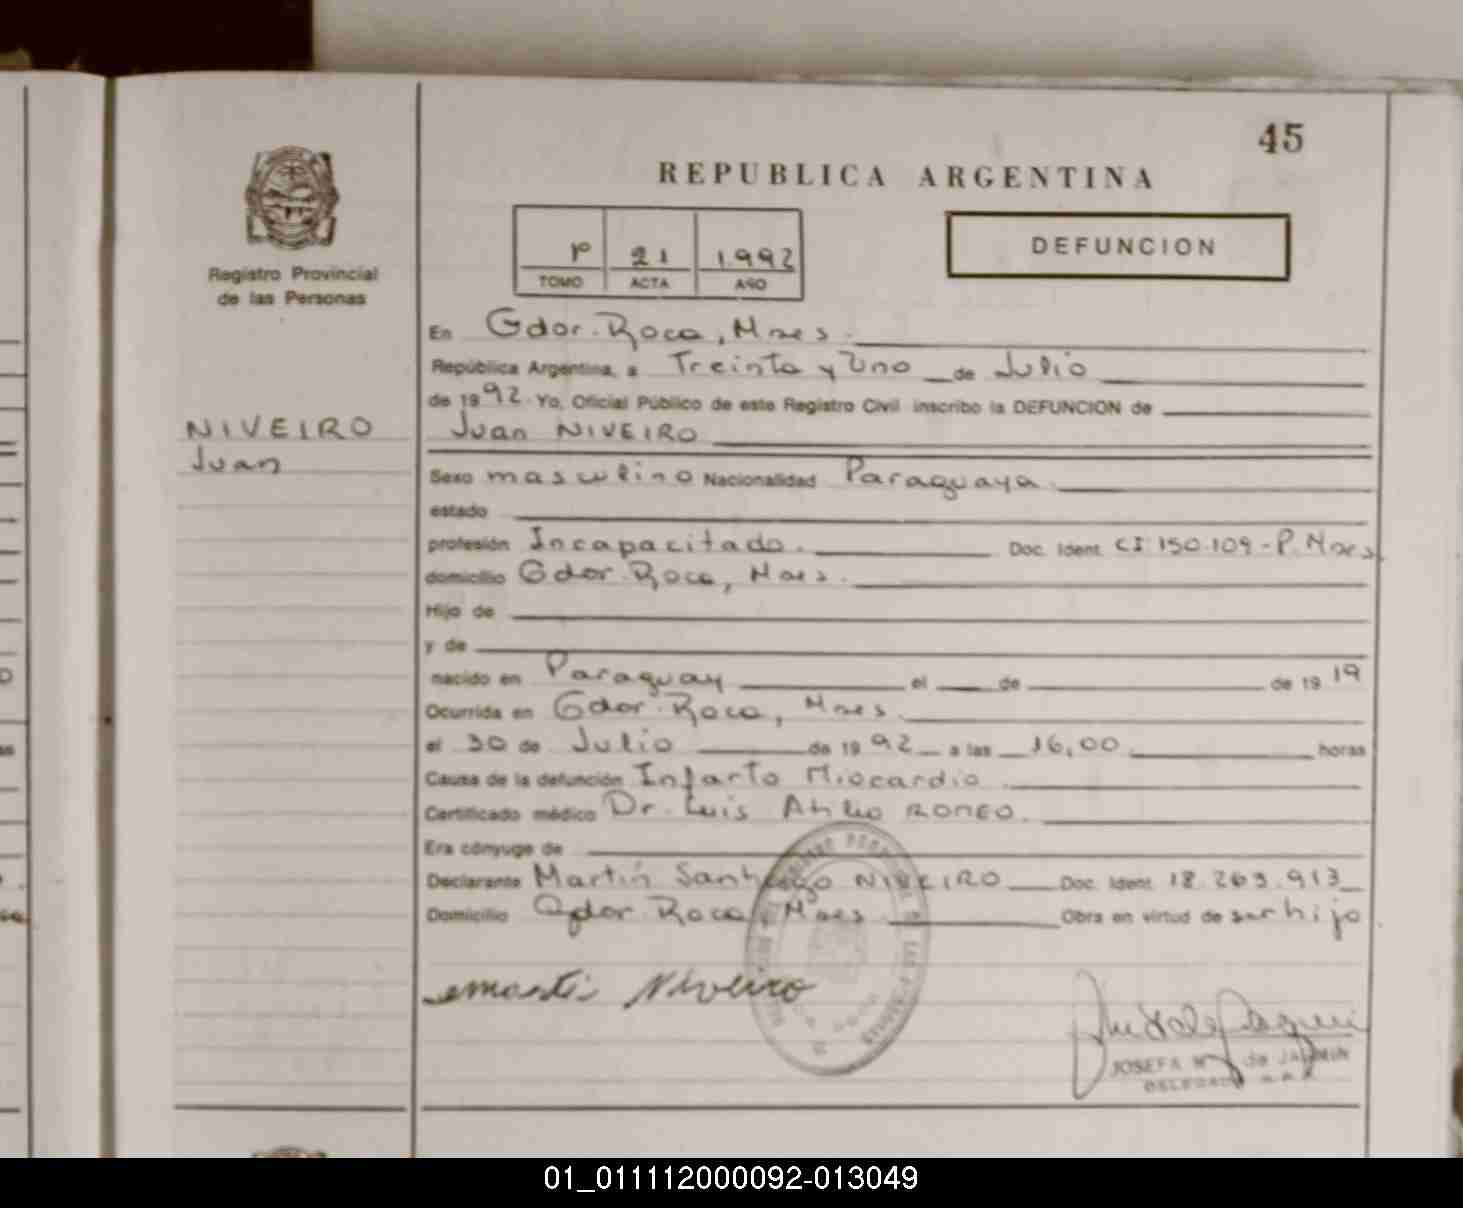 45
REPUBLICA ARGENTINA
DEFUNCION
1º 21 1.992
TOMO ACTA AÑO
Registro Provincial
de las Personas
NIVEIRO
Juan
En Gdor. Roca, Mnes.
República Argentina, a Treinta y Uno de Julio
de 1992. Yo, Oficial Público de este Registro Civil inscribo la DEFUNCION de
Juan NIVEIRO
Sexo masculino Nacionalidad Paraguaya
estado
profesión Incapacitado. Doc. Ident. CI: 150.109 - P. Mnes
domicilio Gdor. Roca, Mnes.
Hijo de
y de
nacido en Paraguay el de de 1919
Ocurrida en Gdor. Roca, Mnes.
el 30 de Julio de 1992 a las 16,00 horas
Causa de la defunción Infarto Miocardio
Certificado médico Dr. Luis Atilio ROMEO.
Era cónyuge de
Declarante Martín Santiago NIVEIRO Doc. Ident. 18.263.913
Domicilio Gdor Roca, Mnes Obra en virtud de ser hijo.
Niveiro
JOSEFA de
01_011112000092-013049